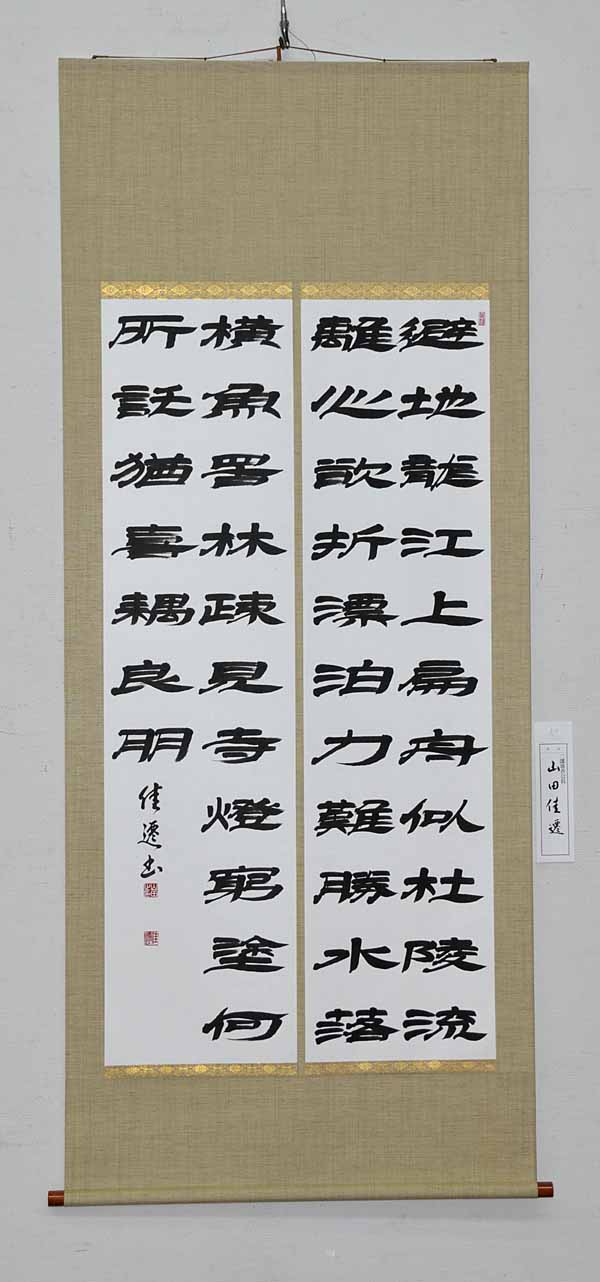 避地龍江上扁舟似杜陵流
離心欲折漂泊力難勝水落
橫魚罟林疎見寺燈窮途何
所託猶喜耦良朋
佳遷書
山田佳遷